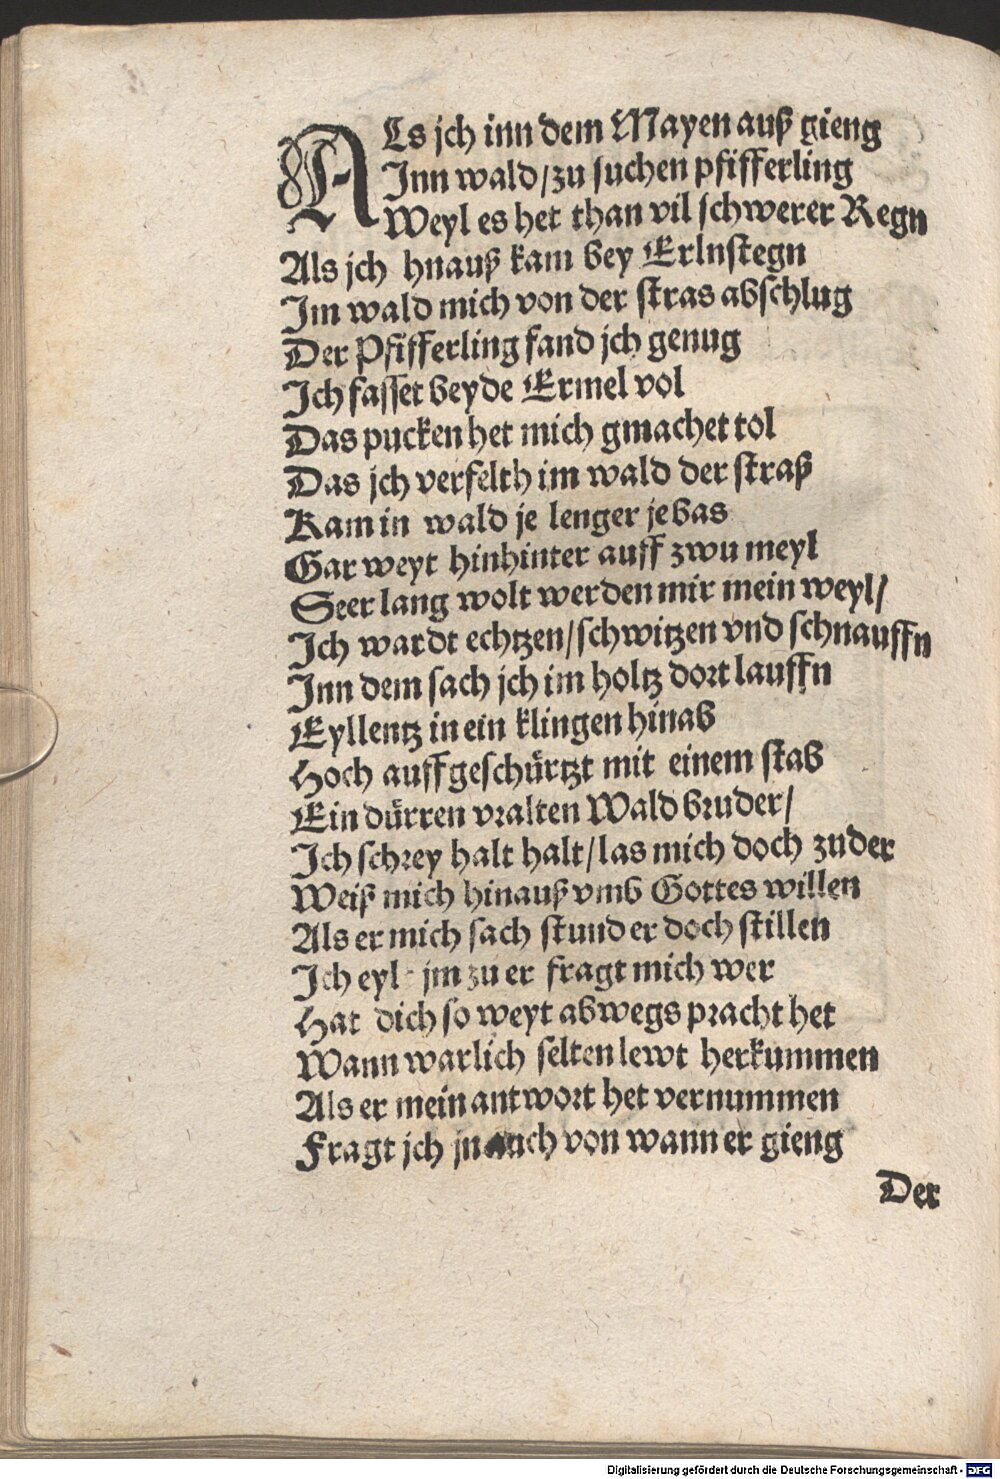 ALs jch inn dem Mayen auß gieng
Inn wald/zu suchen pfifferling
Weyl es het than vil schwerer Regn
Als jch hnauß kam bey Erlnstegn
Im wald mich von der stras abschlug
Der Pfifferling fand jch genug
Ich fasset beyde Ermel vol
Das pucken het mich gmachet tol
Das jch verfelth im wald der straß
Kam in wald je lenger je bas
Gar weyt hinhinter auff zwu meyl
Seer lang wolt werden mir mein weyl/
Ich wardt echtzen/schwitzen vnd schnauffn
Inn dem sach jch im holtz dort lauffn
Eyllentz in ein klingen hinab
Hoch auffgeschürtzt mit einem stab
Ein dürren vralten Waldbruder/
Ich schrey halt halt/las mich doch zu der
Weiß mich hinauß vmb Gottes willen
Als er mich sach stund er doch stillen
Ich eylt jm zu er fragt mich wer
Hat dich so weyt abwegs pracht het
Wann warlich selten lewt herkummen
Als er mein antwort het vernummen
Fragt jch jn auch von wann er gieng
Der
Digitalisierung gefördert durch die Deutsche Forschungsgemeinschaft - DFG